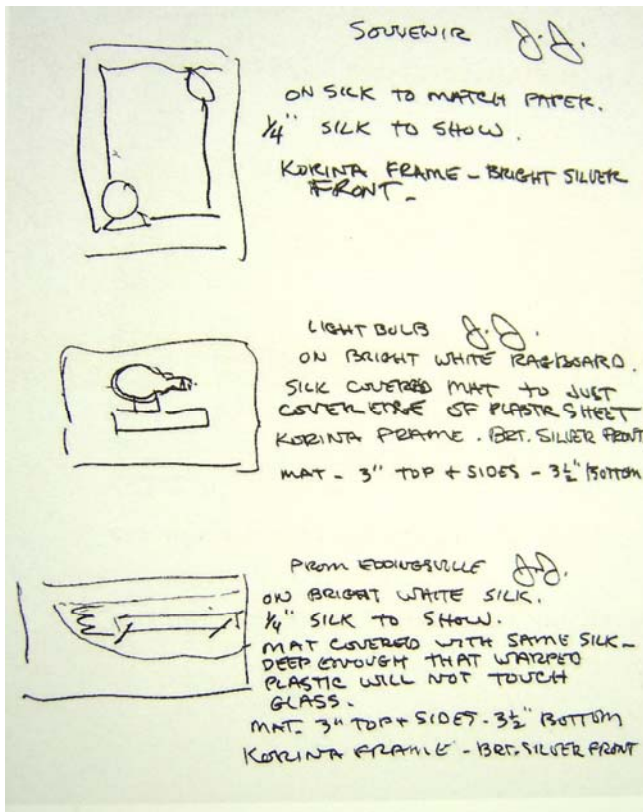 SOUVENIR J.J.
ON SILK TO MATCH PAPER.
1/4" SILK TO SHOW.
KORINA FRAME - BRIGHT SILVER
FRONT -
LIGHT BULB J.J.
ON BRIGHT WHITE RAGBOARD.
SILK COVERED MAT TO JUST
COVER EDGE OF PLASTR SHEET
KORINA FRAME. BRT. SILVER FRONT
MAT - 3" TOP + SIDES - 3½" BOTTOM
FROM EDDINGSVILLE J.J.
ON BRIGHT WHITE SILK.
1/4" SILK TO SHOW.
MAT COVERED WITH SAME SILK -
DEEP ENOUGH THAT WARPED
PLASTIC WILL NOT TOUCH
GLASS.
MAT - 3" TOP + SIDES - 3½" BOTTOM
KORINA FRAME - BRT. SILVER FRONT